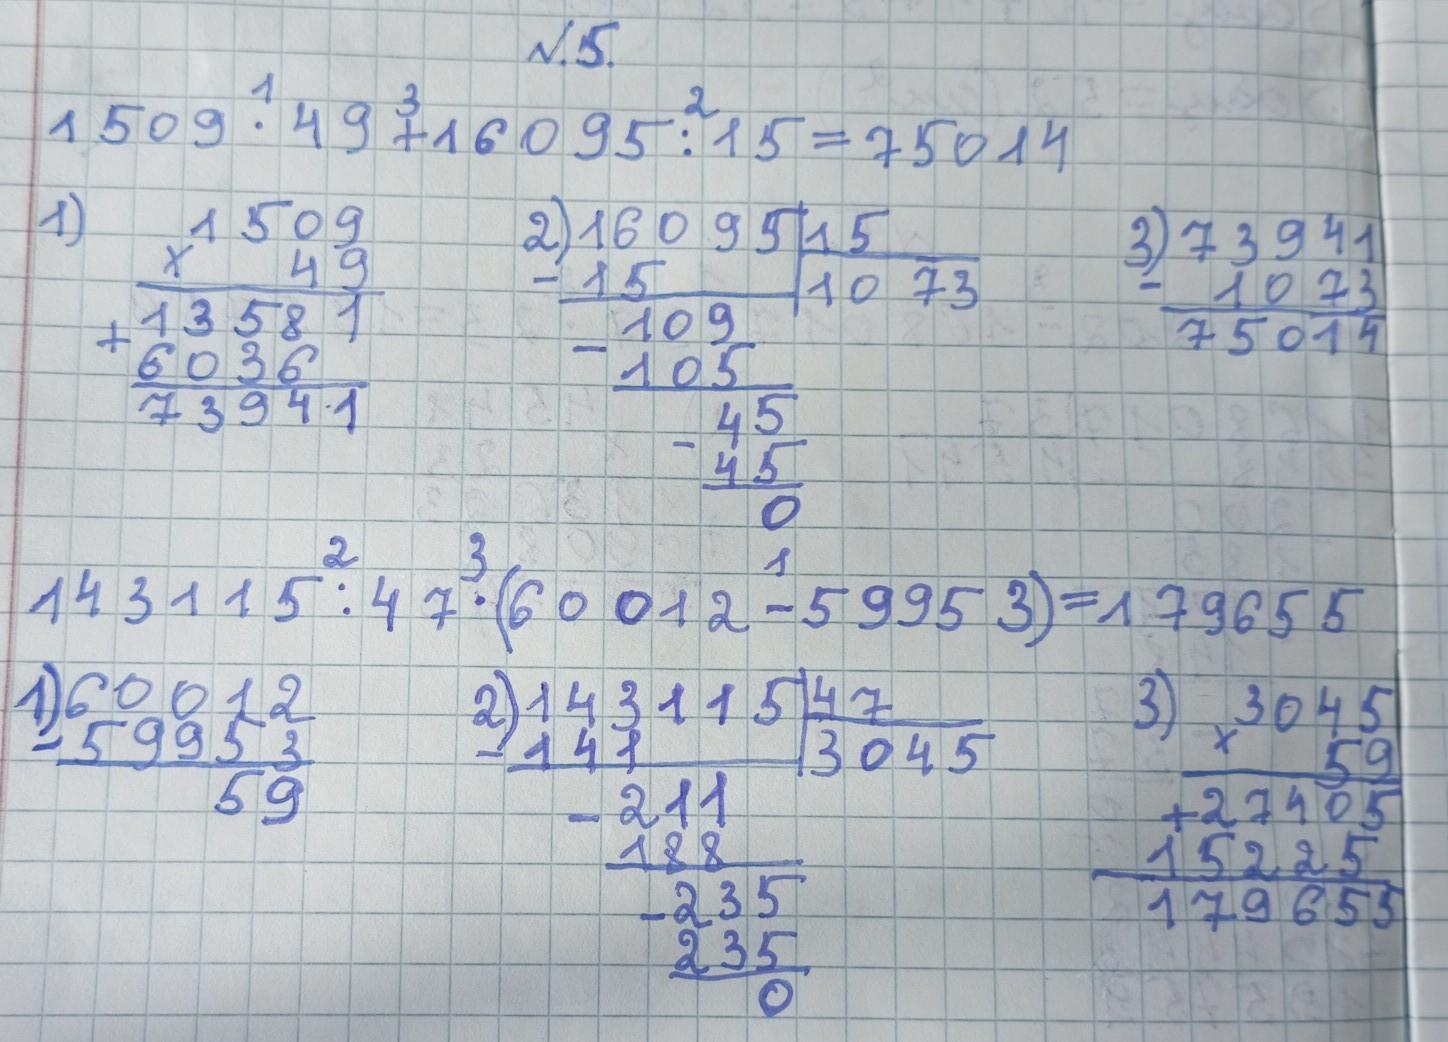 №5.
1 3 2
1509·49+16095:15=75014
1) 1509 2) 16095 15 3) 73941
x 49 -15 1073 - 1073
13581 109 75014
+ 6036 - 105
73941 45
- 45
0
2 3 1
143115:47·(60012-59953)=179655
1) 60012 2) 143115 47 3) 3045
- 59953 - 141 3045 x 59
59 - 211 + 27405
188 15225
- 235 179655
235
0